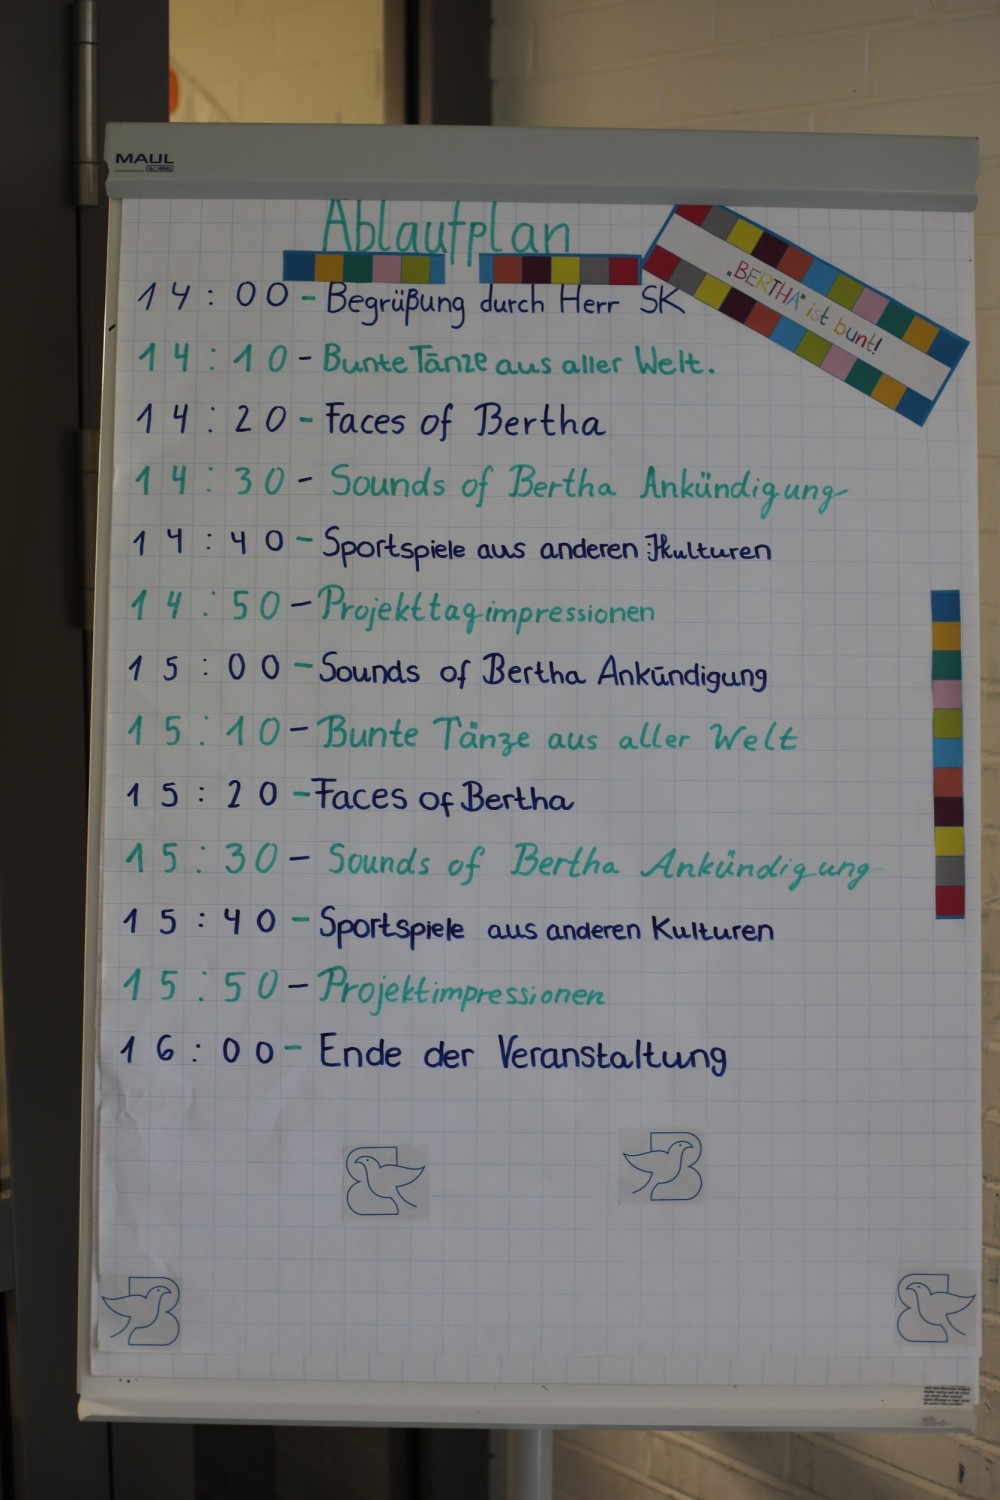 MAUL
Ablaufplan
„BERTHA" ist bunt!
14:00 - Begrüßung durch Herr SK
14:10 - Bunte Tänze aus aller Welt.
14:20 - Faces of Bertha
14:30 - Sounds of Bertha Ankündigung
14:40 - Sportspiele aus anderen Kulturen
14:50 - Projekttagimpressionen
15:00 - Sounds of Bertha Ankündigung
15:10 - Bunte Tänze aus aller Welt
15:20 - Faces of Bertha
15:30 - Sounds of Bertha Ankündigung
15:40 - Sportspiele aus anderen Kulturen
15:50 - Projektimpressionen
16:00 - Ende der Veranstaltung